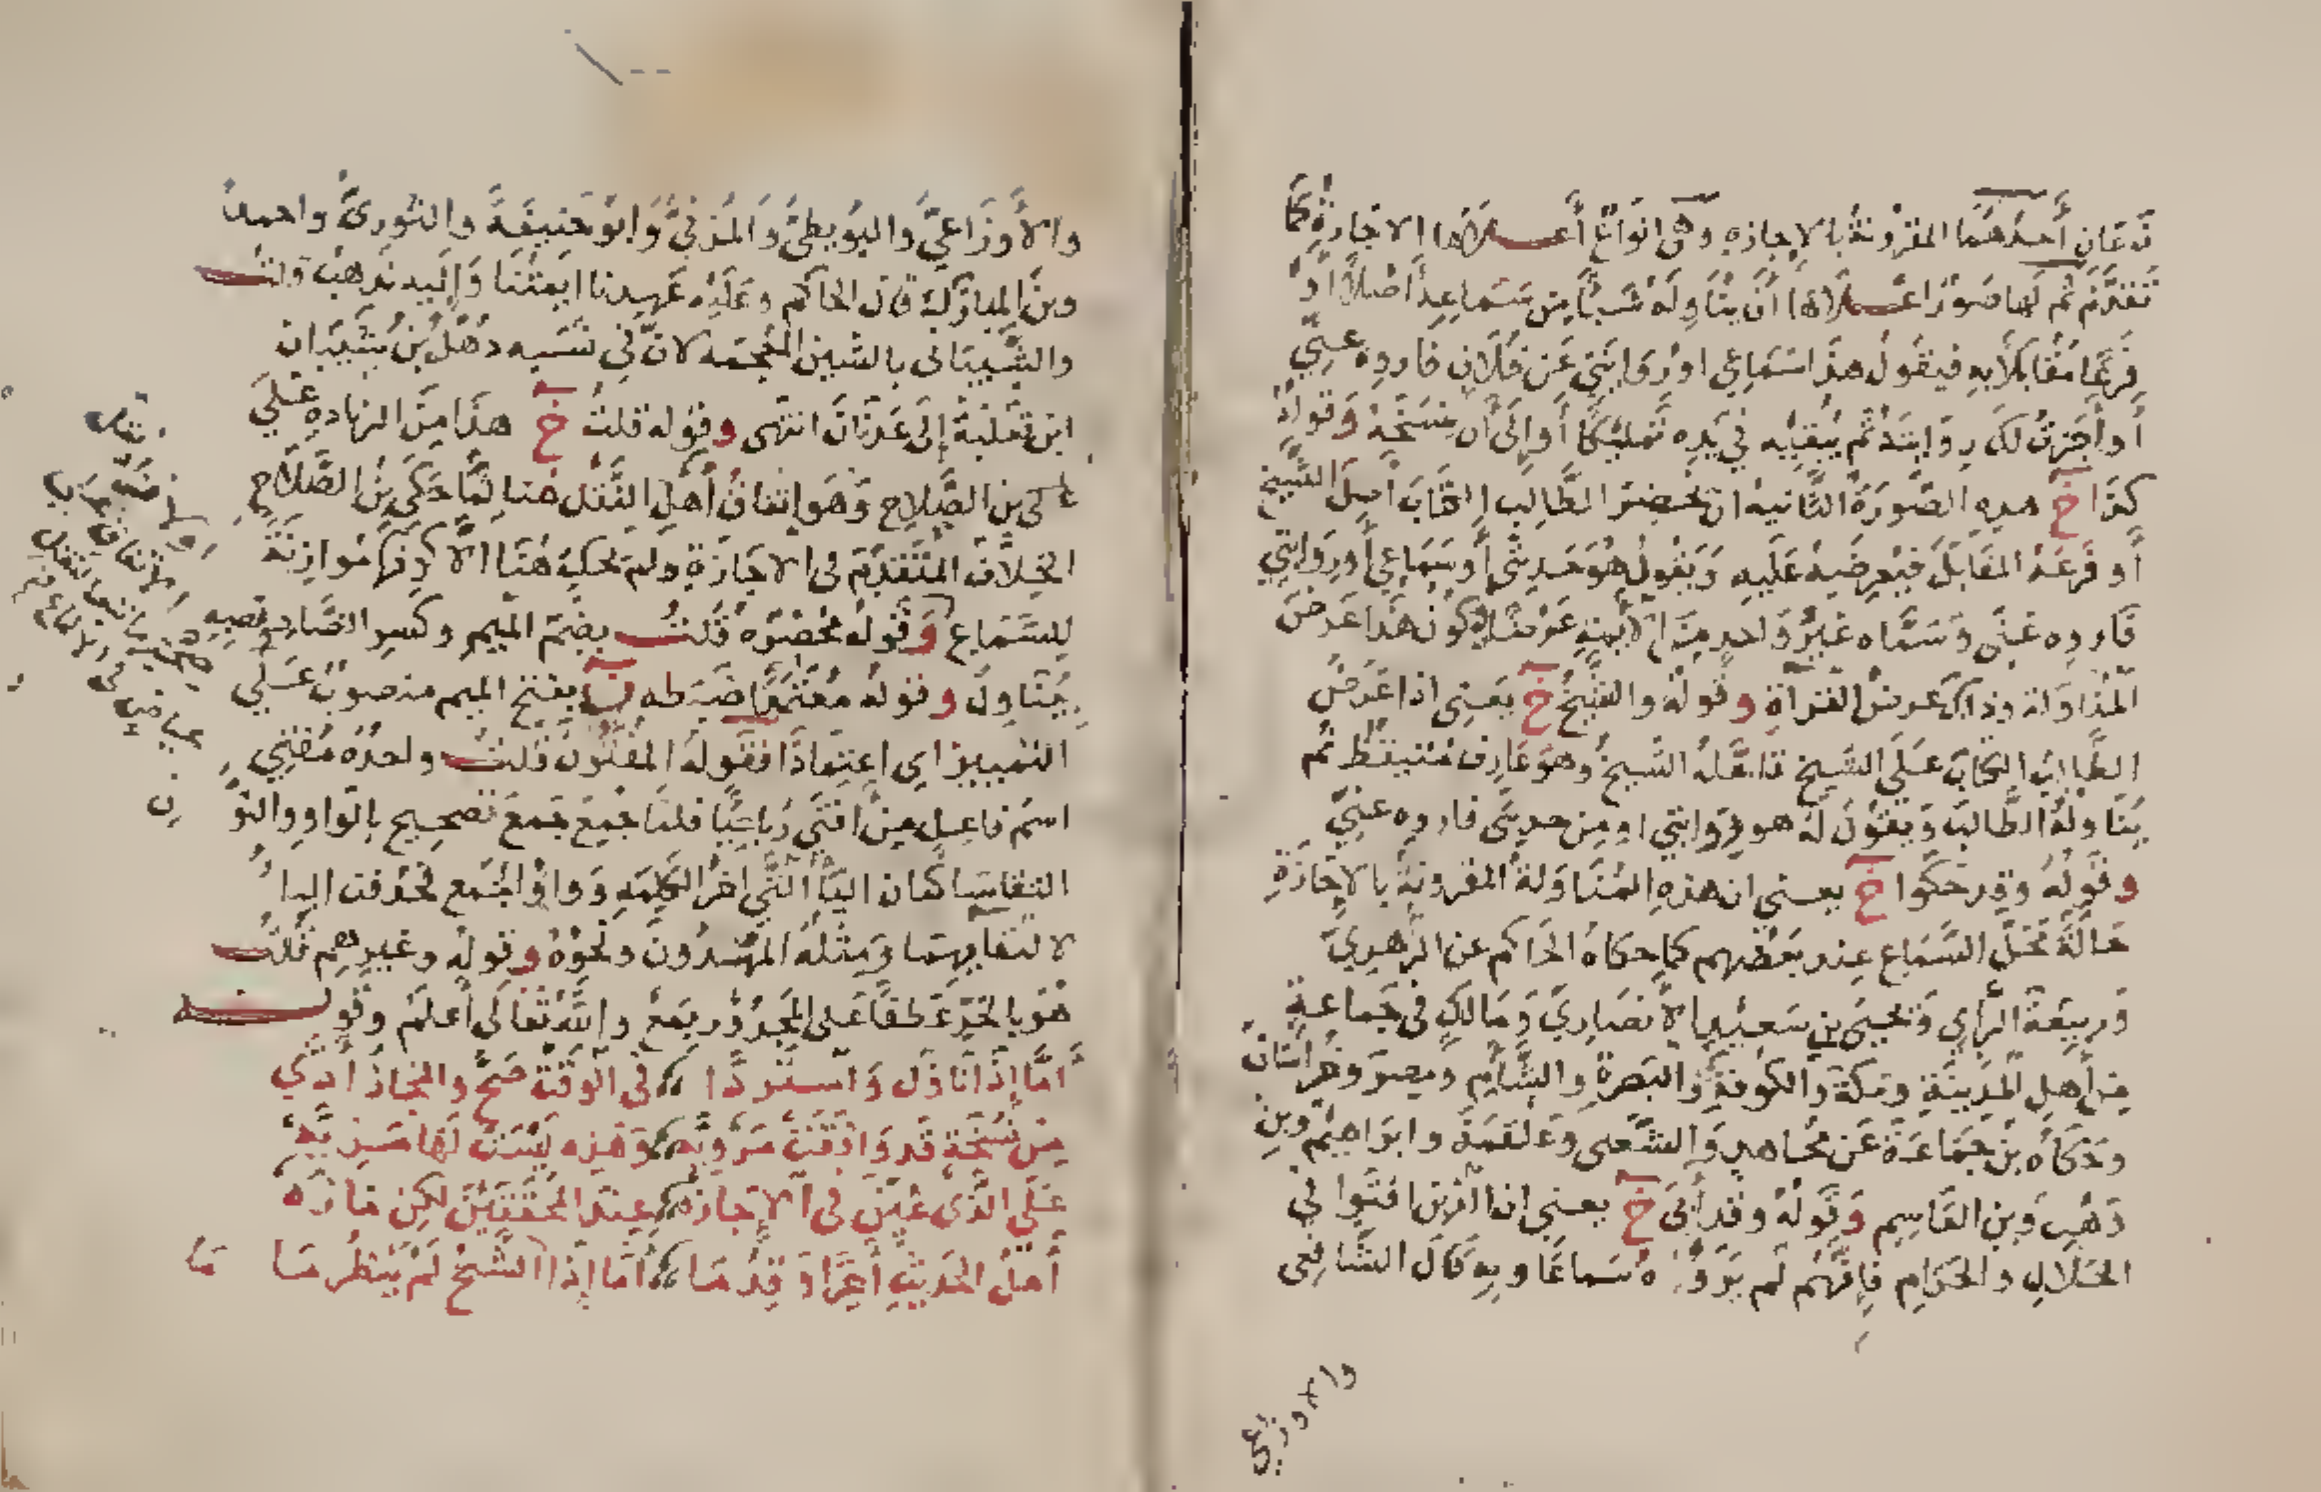 نوعان أحدهما المقرونة بالإجازه وهى انواع أعلاها الاجازة كما
تقدم ثم لها صور اعلاها أن يناوله شيًا من سماعه أصلا أو
فرعًا مقابلا به فيقول هذا سماعي او روايتي عن فلان فاروه عني
أو أجزت لك روايته ثم يبقيه في يده تمليكا أو إلى أن ينسخه وقوله
كذا خ هذه الصورة الثانية ان يحضر الطالب الكتاب أصل الشيخ
أو فرعه المقابل فيعرضه عليه ويقول هو حديثى أو سماعي أو روايتي
فاروه عنى وسماه غير واحد من الأيمة عرضا لكون هذا عرض
المناولة وذاك عرض القراة وقوله والشيخ خ يعنى اذا عرض
الطالب الكتاب على الشيخ تامله الشيخ وهو عارف متيقظ ثم
يناوله الطالب ويقول له هو روايتي او من حديثى فاروه عني
وقوله وقد حكوا خ يعني ان هذه المناولة المقرونة بالاجازة
حالة محل السماع عند بعضهم كما حكاه الحاكم عن الزهري
وربيعة الراي ويحيى بن سعيد الأنصاري ومالك في جماعة
من أهل المدينة ومكة والكوفة والبصرة والشام ومصر وخراسان
وحكاه بن جماعة عن مجاهد والشعبى وعلقمة وابراهيم وبن
وهب وبن القاسم وقوله وقد أبى خ يعني ان الذين افتوا في
الحلال والحرام فإنهم لم يروه سماعًا وبه قال الشافعى
والاوزاعي
والأوزاعي والبويطي والمزني وابو حنيفة والثوري واحمد
وبن المبارك قال الحاكم وعليه عهدنا ايمتنا وإليه نذهب قلت
والشيبانى بالشين المعجمه لان في نسبه ذهل بن شيبان
ابن ثعلبة إلى عدنان انتهى وقوله قلت خ هذا من الزياده على
على بن الصلاح وهو إتفاق أهل النقل هنا لما حكى بن الصلاح
الخلاف المتقدم فى الاجازة ولم يحك هنا الا كونها موازنة
للسماع وقوله محضره قلت بضم الميم وكسر الضاد ونصبه
بيناول وقوله معتمدا ضبطه ن بفتح الميم منصوب على
التمييز اى اعتمادًا فقوله المفتون قلت واحده مفتي
اسم فاعل من افتى رباعيًا فلما جمع جمع تصحيح بالواو والنو
التقا ساكنان اليأ التي اخر الكلمه وواو الجمع فحذفت اليا
لالتقايهما ومثله المهتدون ونحوه وقوله وغيرهم قلت
هو بالجر عطفًا على المجرور بمع والله تعالى أعلم وقوله
أما إذا ناول واستردا في الوقت صح والمجاز أدى
من نسخة قد وافقت مرويه وهذه ليست لها مزيه
على الذى عين فى الاجازه عند المحققين لكن مازه
أهل الحديث أخرا وقدما أما إذا الشيخ لم ينظر ما